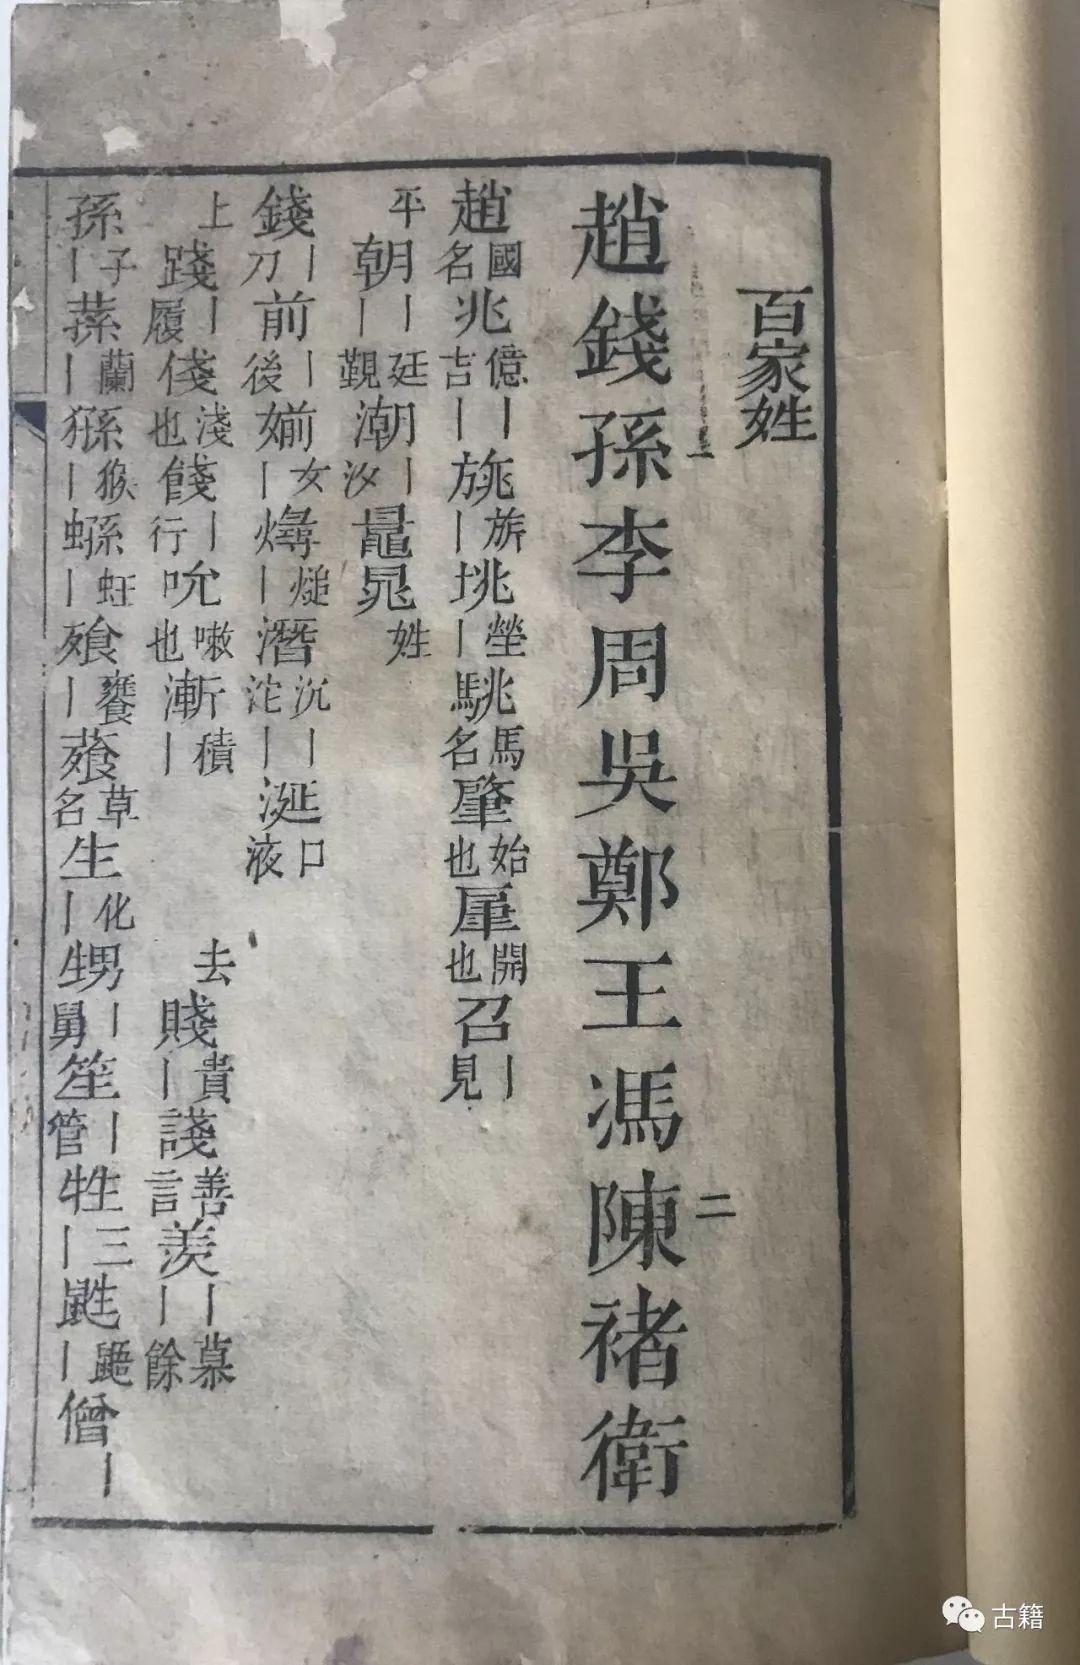 百家姓
一
二
趙錢孫李周吳鄭王馮陳褚衛
趙國名兆億丨吉丨旐旂丨垗塋丨駣馬名肈始也肁開也召丨見
平
朝丨丨廷覲潮丨汐鼂晁姓
錢丨刀前丨後媊女丨燖燧丨潛沉沱丨丨涎口液
上
踐丨履俴淺也餞丨行吮嗽也漸積丨
去
賤貴丨諓善言羨丨丨慕餘
孫子丨蓀蘭丨猻猴丨蛛蚟丨飧饔丨蕵草名生化丨甥丨舅笙丨管牲三丨鼪鼯丨僧丨